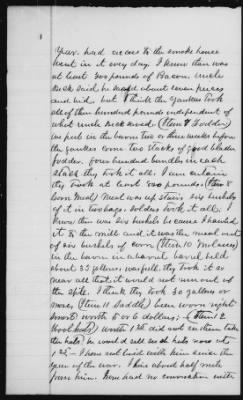 Year. had access to the smoke house
went in it every day. I know there was
at least 300 pounds of Bacon. Uncle
Dick said he saved about seven pieces
and hid but I think the Yankees took
all of three hundred pounds independent of
what uncle Dick saved (Item 7 Fodder)
we put in the barn two or three weeks before
the yankees come two stacks of good blade
fodder. four hundred bundles in each
stack they took it all. I am certain
they took at least 800 pounds. (Item 8
Corn Meal) Meal was up stairs six bushels
of it in two bags. Soldiers took it all. I
know there was six bushels because I hauled
it to the mill and it was the meal out
of six bushels of corn (Item 10 Molasses)
in the barn in a barrel barrel held
about 35 gallons. was full. they took it so
near all that it would not run out of
the spile. I think they took 30 gallons or
more. (Item 11 Saddle) been worn right
smart worth 5 or 6 dollars; (Item 12
Wool hats) worth 1$ did not see them take
the hats. he would sell such hats now at
1$ — I have not lived with him since the
year of the war. I live about half mile
from him. have had no conversation with